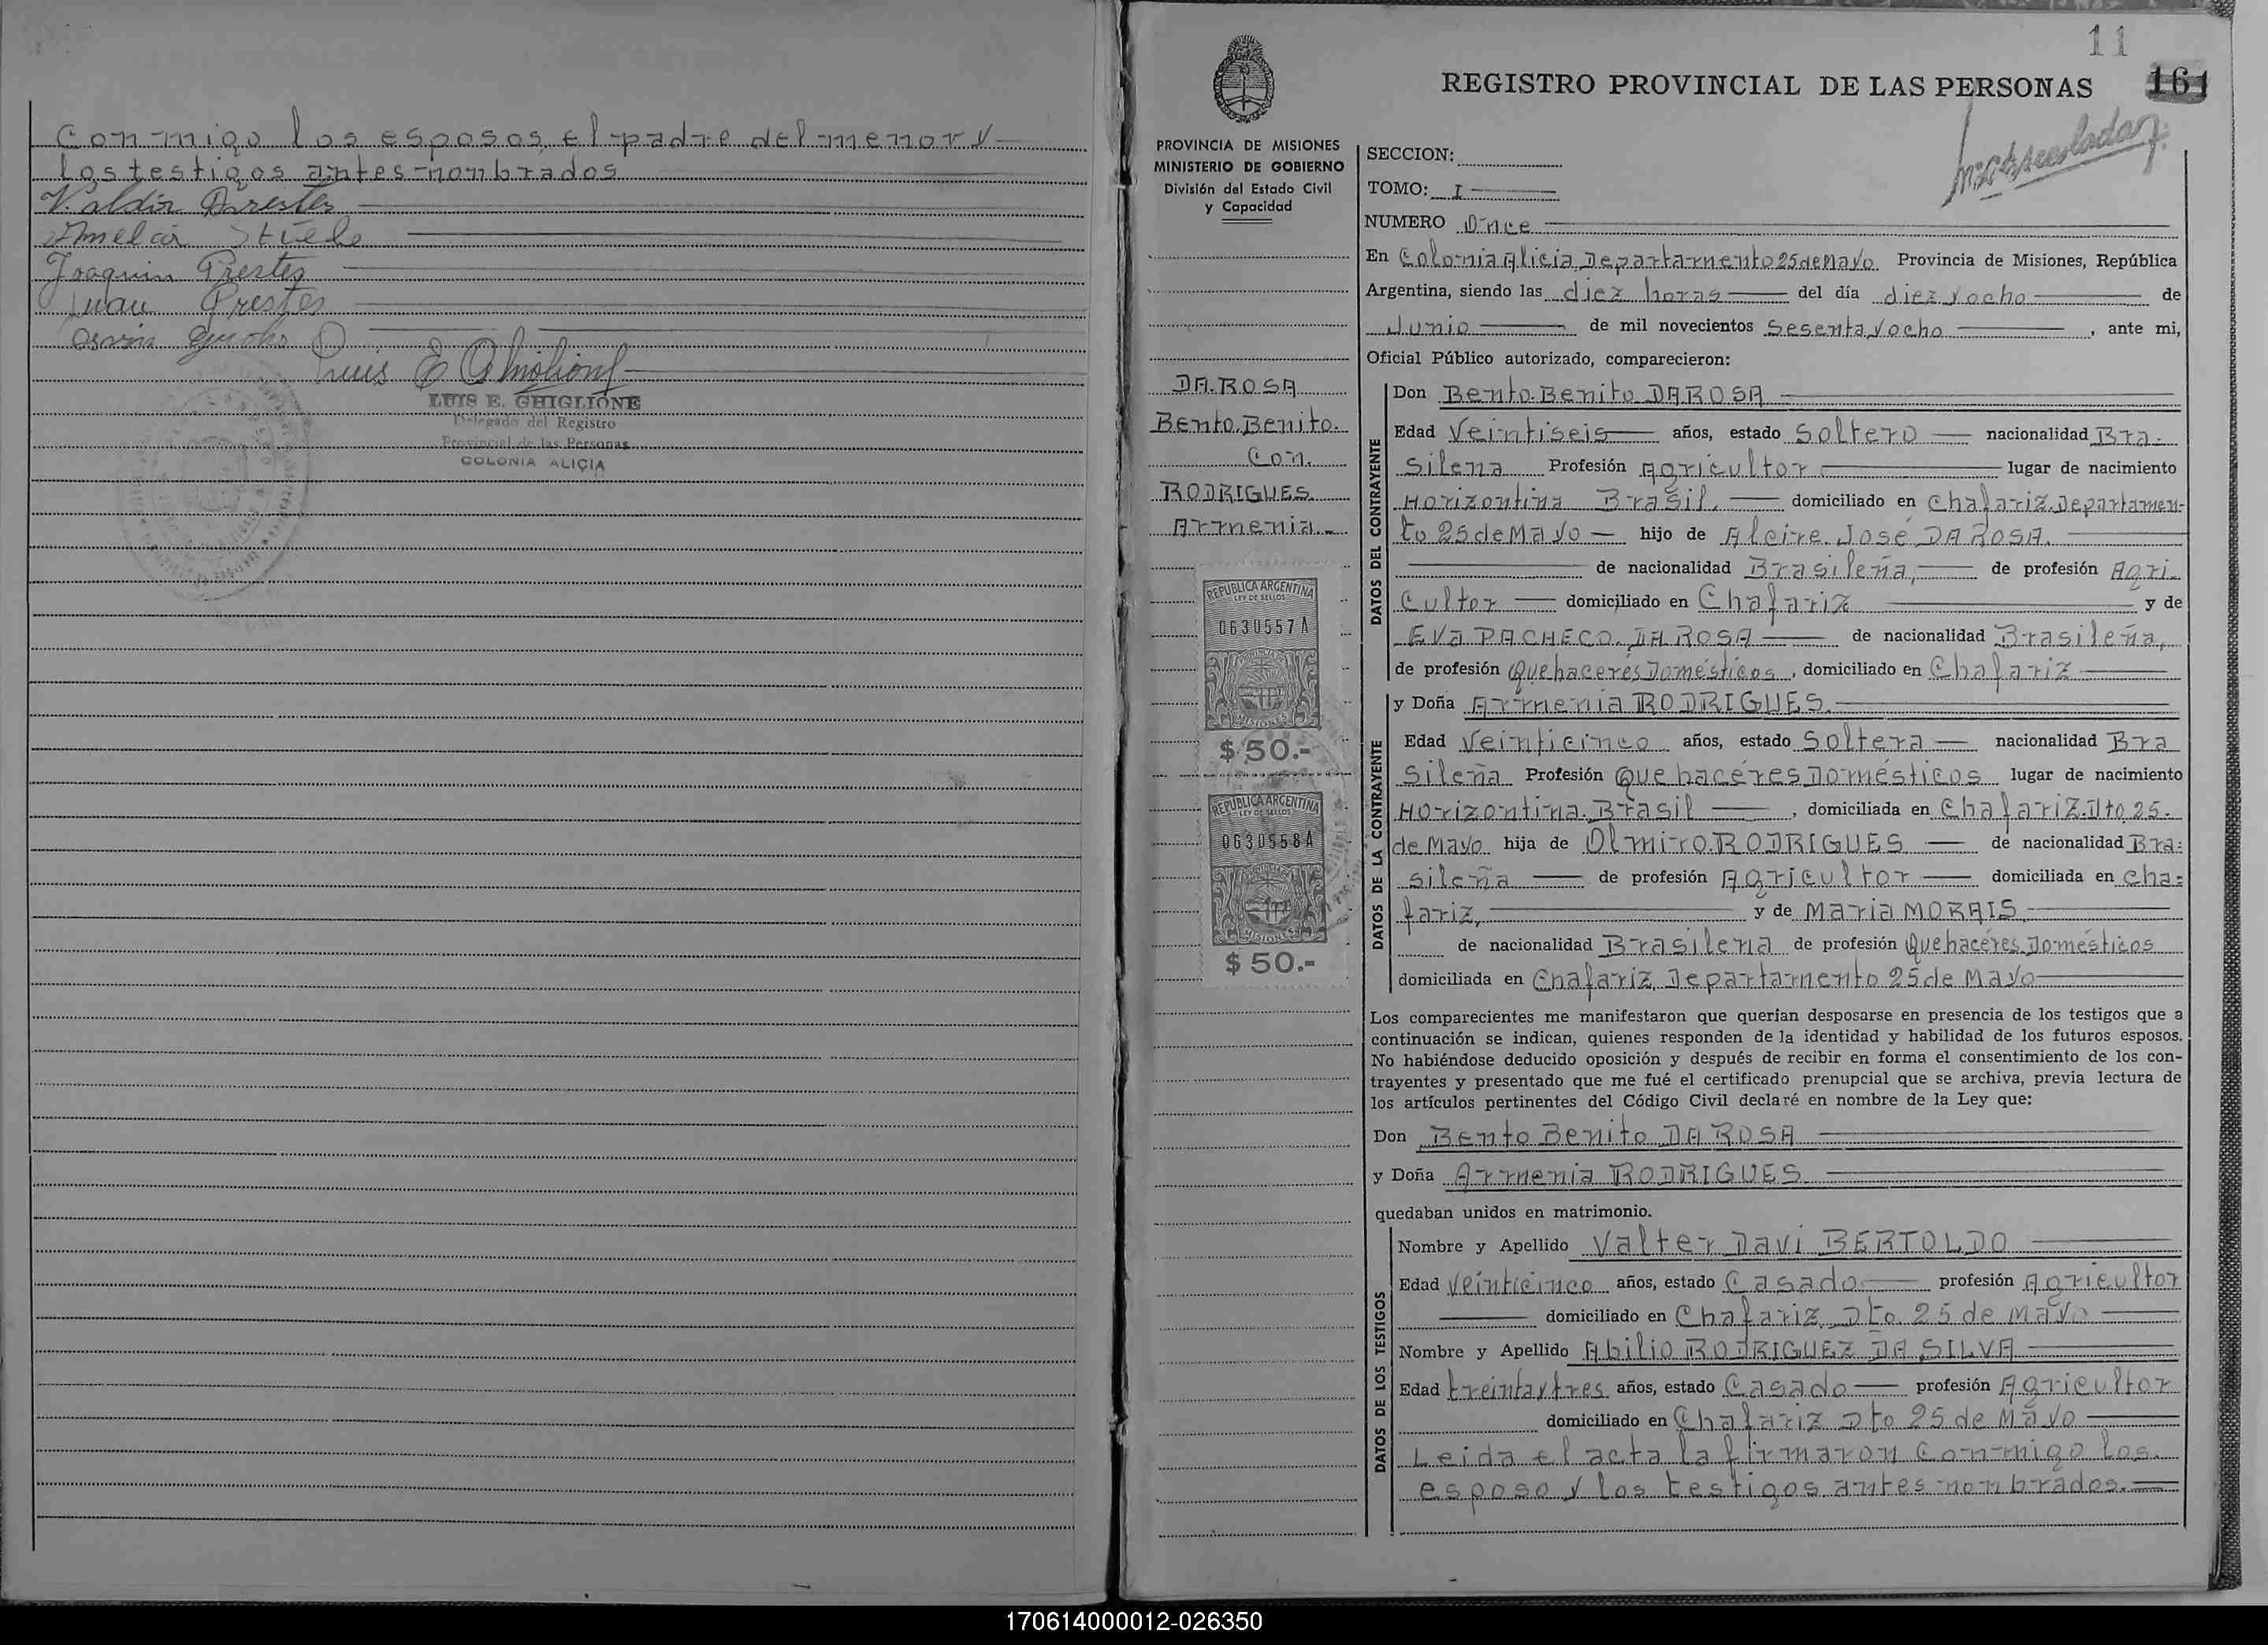 con migo los esposos, el padre del menor y
los testigos antes nombrados
Valdir Prestes
Amelia
Joaquin Prestes
Juan Prestes
Luis E Ghiglione
LUIS E. GHIGLIONE
Delegado del Registro
Provincial de las Personas
COLONIA ALICIA
11
REGISTRO PROVINCIAL DE LAS PERSONAS
161
PROVINCIA DE MISIONES
MINISTERIO DE GOBIERNO
División del Estado Civil
y Capacidad
DA ROSA
Bento Benito
Con
RODRIGUES
Armenia.-
REPUBLICA ARGENTINA
LEY DE SELLOS
0630557A
MISIONES
$ 50.-
REPUBLICA ARGENTINA
LEY DE SELLOS
0630558A
MISIONES
$ 50.-
SECCION:
TOMO: I
NUMERO Once
En Colonia Alicia Departamento 25 de Mayo Provincia de Misiones, República
Argentina, siendo las diez horas del día diez y ocho de
Junio de mil novecientos Sesenta y ocho, ante mi,
Oficial Público autorizado, comparecieron:
DATOS DEL CONTRAYENTE
Don Bento Benito DA ROSA
Edad Veintiseis años, estado Soltero nacionalidad Bra-
sileña Profesión Agricultor lugar de nacimiento
Horizontina Brasil. domiciliado en Chafariz Departamen-
to 25 de Mayo hijo de Alcire José DA ROSA.
de nacionalidad Brasileña, de profesión Agri-
cultor domiciliado en Chafariz y de
EVA PACHECO DA ROSA de nacionalidad Brasileña,
de profesión Quehaceres Domésticos, domiciliado en Chafariz
DATOS DE LA CONTRAYENTE
y Doña Armenia RODRIGUES.
Edad Veinticinco años, estado Soltera nacionalidad Bra
sileña Profesión Que haceres Domésticos lugar de nacimiento
Horizontina Brasil, domiciliada en Chafariz. Dto 25.
de Mayo hija de Olmiro RODRIGUES de nacionalidad Bra=
sileña de profesión Agricultor domiciliada en Cha=
fariz, y de Maria MORAIS,
de nacionalidad Brasileña de profesión Quehaceres Domésticos
domiciliada en Chafariz, Departamento 25 de Mayo
Los comparecientes me manifestaron que querian desposarse en presencia de los testigos que a
continuación se indican, quienes responden de la identidad y habilidad de los futuros esposos.
No habiéndose deducido oposición y después de recibir en forma el consentimiento de los con-
trayentes y presentado que me fué el certificado prenupcial que se archiva, previa lectura de
los artículos pertinentes del Código Civil declaré en nombre de la Ley que:
Don Bento Benito DA ROSA
y Doña Armenia RODRIGUES
quedaban unidos en matrimonio.
DATOS DE LOS TESTIGOS
Nombre y Apellido Valter Davi BERTOLDO
Edad Veinticinco años, estado Casado profesión Agricultor
domiciliado en Chafariz Dto. 25 de Mayo
Nombre y Apellido Abilio RODRIGUEZ DA SILVA
Edad treinta y tres años, estado Casado profesión Agricultor
domiciliado en Chafariz Dto 25 de Mayo
Leida el acta la firmaron con migo los
esposo y los testigos antes nombrados.
170614000012-026350